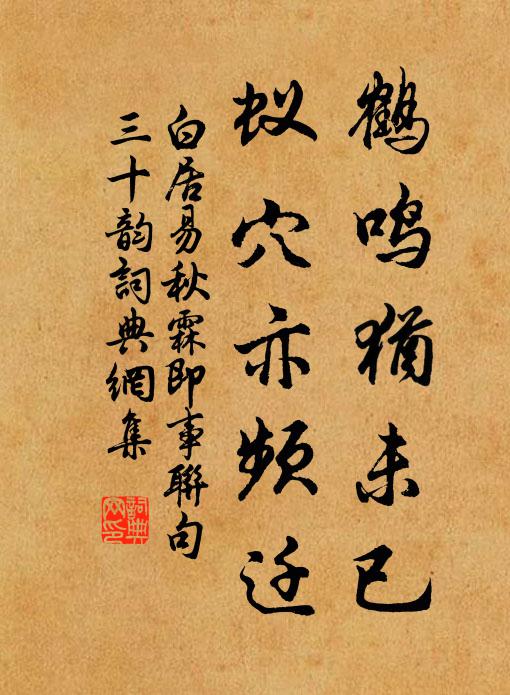 鹤鸣犹未已
蚁穴亦频迁
白居易秋霖即事聯句
三十韵詞典網集
詞典
网印